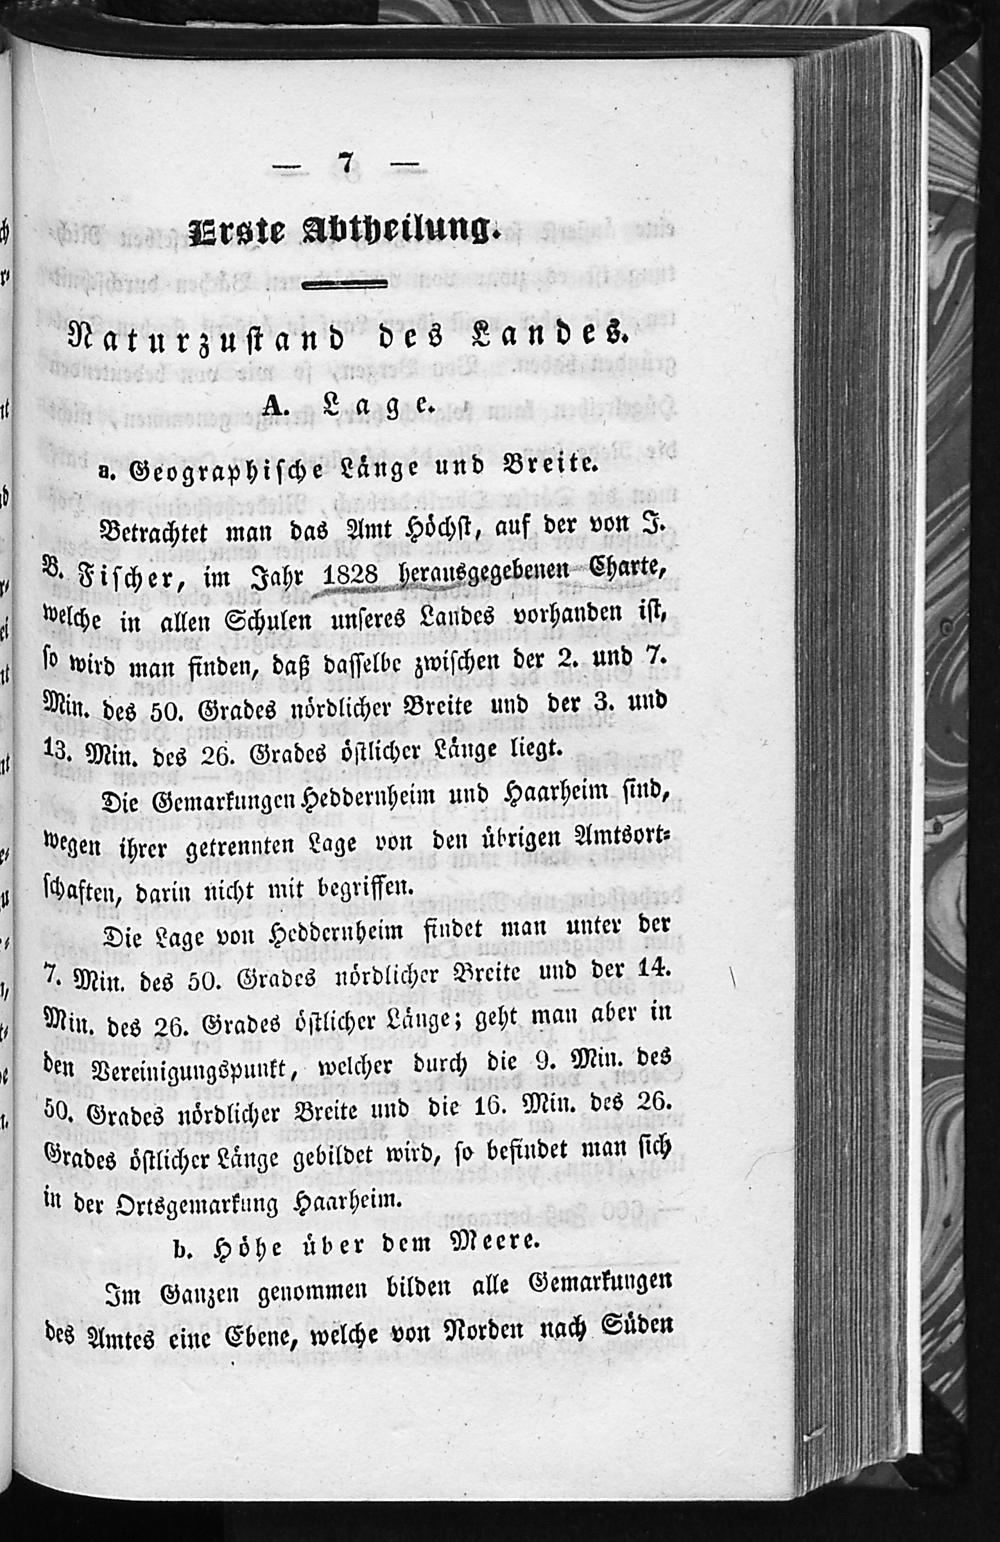 — 7 —
Erste Abtheilung.
Naturzustand des Landes.
A. Lage.
a. Geographische Länge und Breite.
Betrachtet man das Amt Höchst, auf der von J.
B. Fischer, im Jahr 1828 herausgegebenen Charte,
welche in allen Schulen unseres Landes vorhanden ist,
so wird man finden, daß dasselbe zwischen der 2. und 7.
Min. des 50. Grades nördlicher Breite und der 3. und
13. Min. des 26. Grades östlicher Länge liegt.
Die Gemarkungen Heddernheim und Haarheim sind,
wegen ihrer getrennten Lage von den übrigen Amtsort-
schaften, darin nicht mit begriffen.
Die Lage von Heddernheim findet man unter der
7. Min. des 50. Grades nördlicher Breite und der 14.
Min. des 26. Grades östlicher Länge; geht man aber in
den Vereinigungspunkt, welcher durch die 9. Min. des
50. Grades nördlicher Breite und die 16. Min. des 26.
Grades östlicher Länge gebildet wird, so befindet man sich
in der Ortsgemarkung Haarheim.
b. Höhe über dem Meere.
Im Ganzen genommen bilden alle Gemarkungen
des Amtes eine Ebene, welche von Norden nach Süden